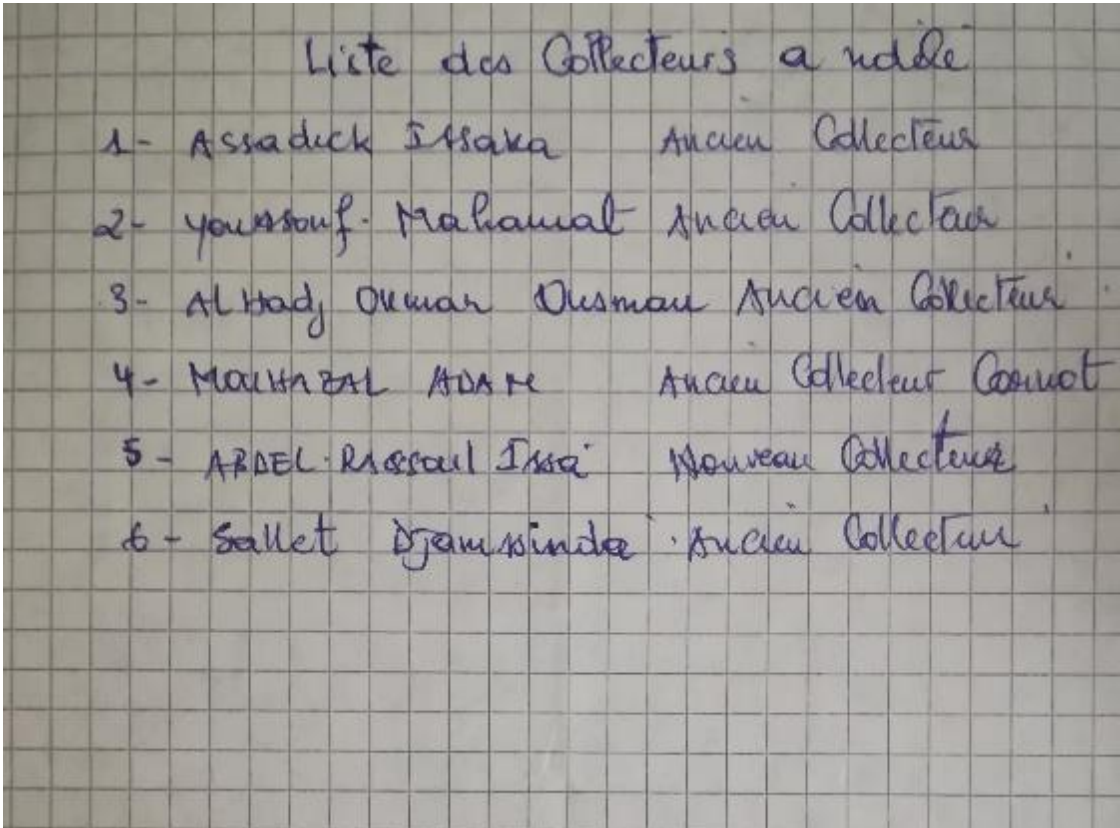 Liste des Collecteurs a ndélé
1- Assadick Issaka Ancien Collecteur
2- Youssouf. Mahamat Ancien Collecteur
3- AL Hadj Oumar Ousman Ancien Collecteur
4- ADAM Ancien Collecteur Carnot
5- ABDEL. Rassoul Issa Nouveau Collecteur
6- Sallet Djamssinda Ancien Collecteur